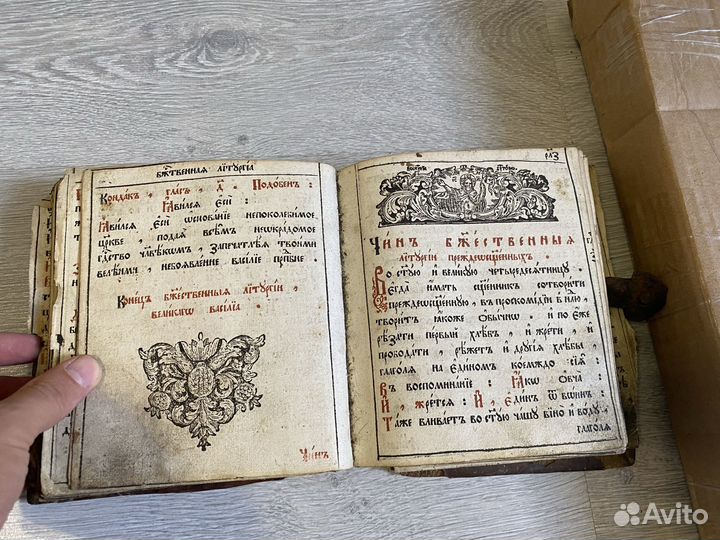 Бж҃твенная літꙋргіа
Кондакъ , гласъ , д҃ . Подобенъ :
Ꙗвился еси :
Ꙗвился еси ѡснованіе непоколебимое
цр҃кве , подаѧ всѣмъ неѡкрадомое
гд҃ство чл҃вѣкѡмъ , запечатлѣѧ твоими
велѣньми , небоявленне василіе прп҃бне .
Конецъ бж҃ественныѧ літꙋргіи ,
великагѡ василїа .
Чинъ
Чинъ бж҃ественныѧ
літꙋргіи преждеѡсщ҃енныхъ .
Во ст҃ꙋю и великꙋю четыредесѧтницꙋ
егда иматъ сщ҃енникъ сотворити
преждеѡсщ҃еннꙋю , въ проскомидїи
творитъ ꙗкоже ѡбычно . и по еже
рѣзати первый хлѣбъ , и жрети , и
прободати , рѣжетъ и дрꙋгіѧ хлѣбы ,
глаголѧ на единомъ коемждо сїѧ :
Въ воспоминанїе : Ꙗкѡ ѡвча
И , жретсѧ : И , единъ ѿ воинъ :
Таже вливаетъ во ст҃ꙋю чашꙋ вїно и водꙋ ,
глаголѧ
Avito